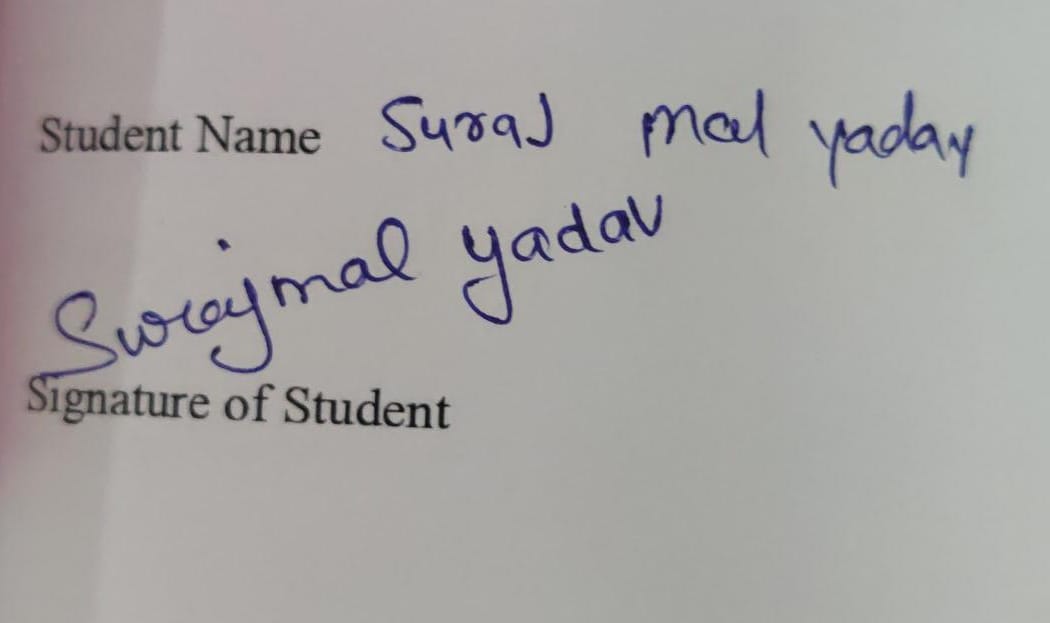 Student Name Suraj mal yadav
Surajmal yadav
Signature of Student